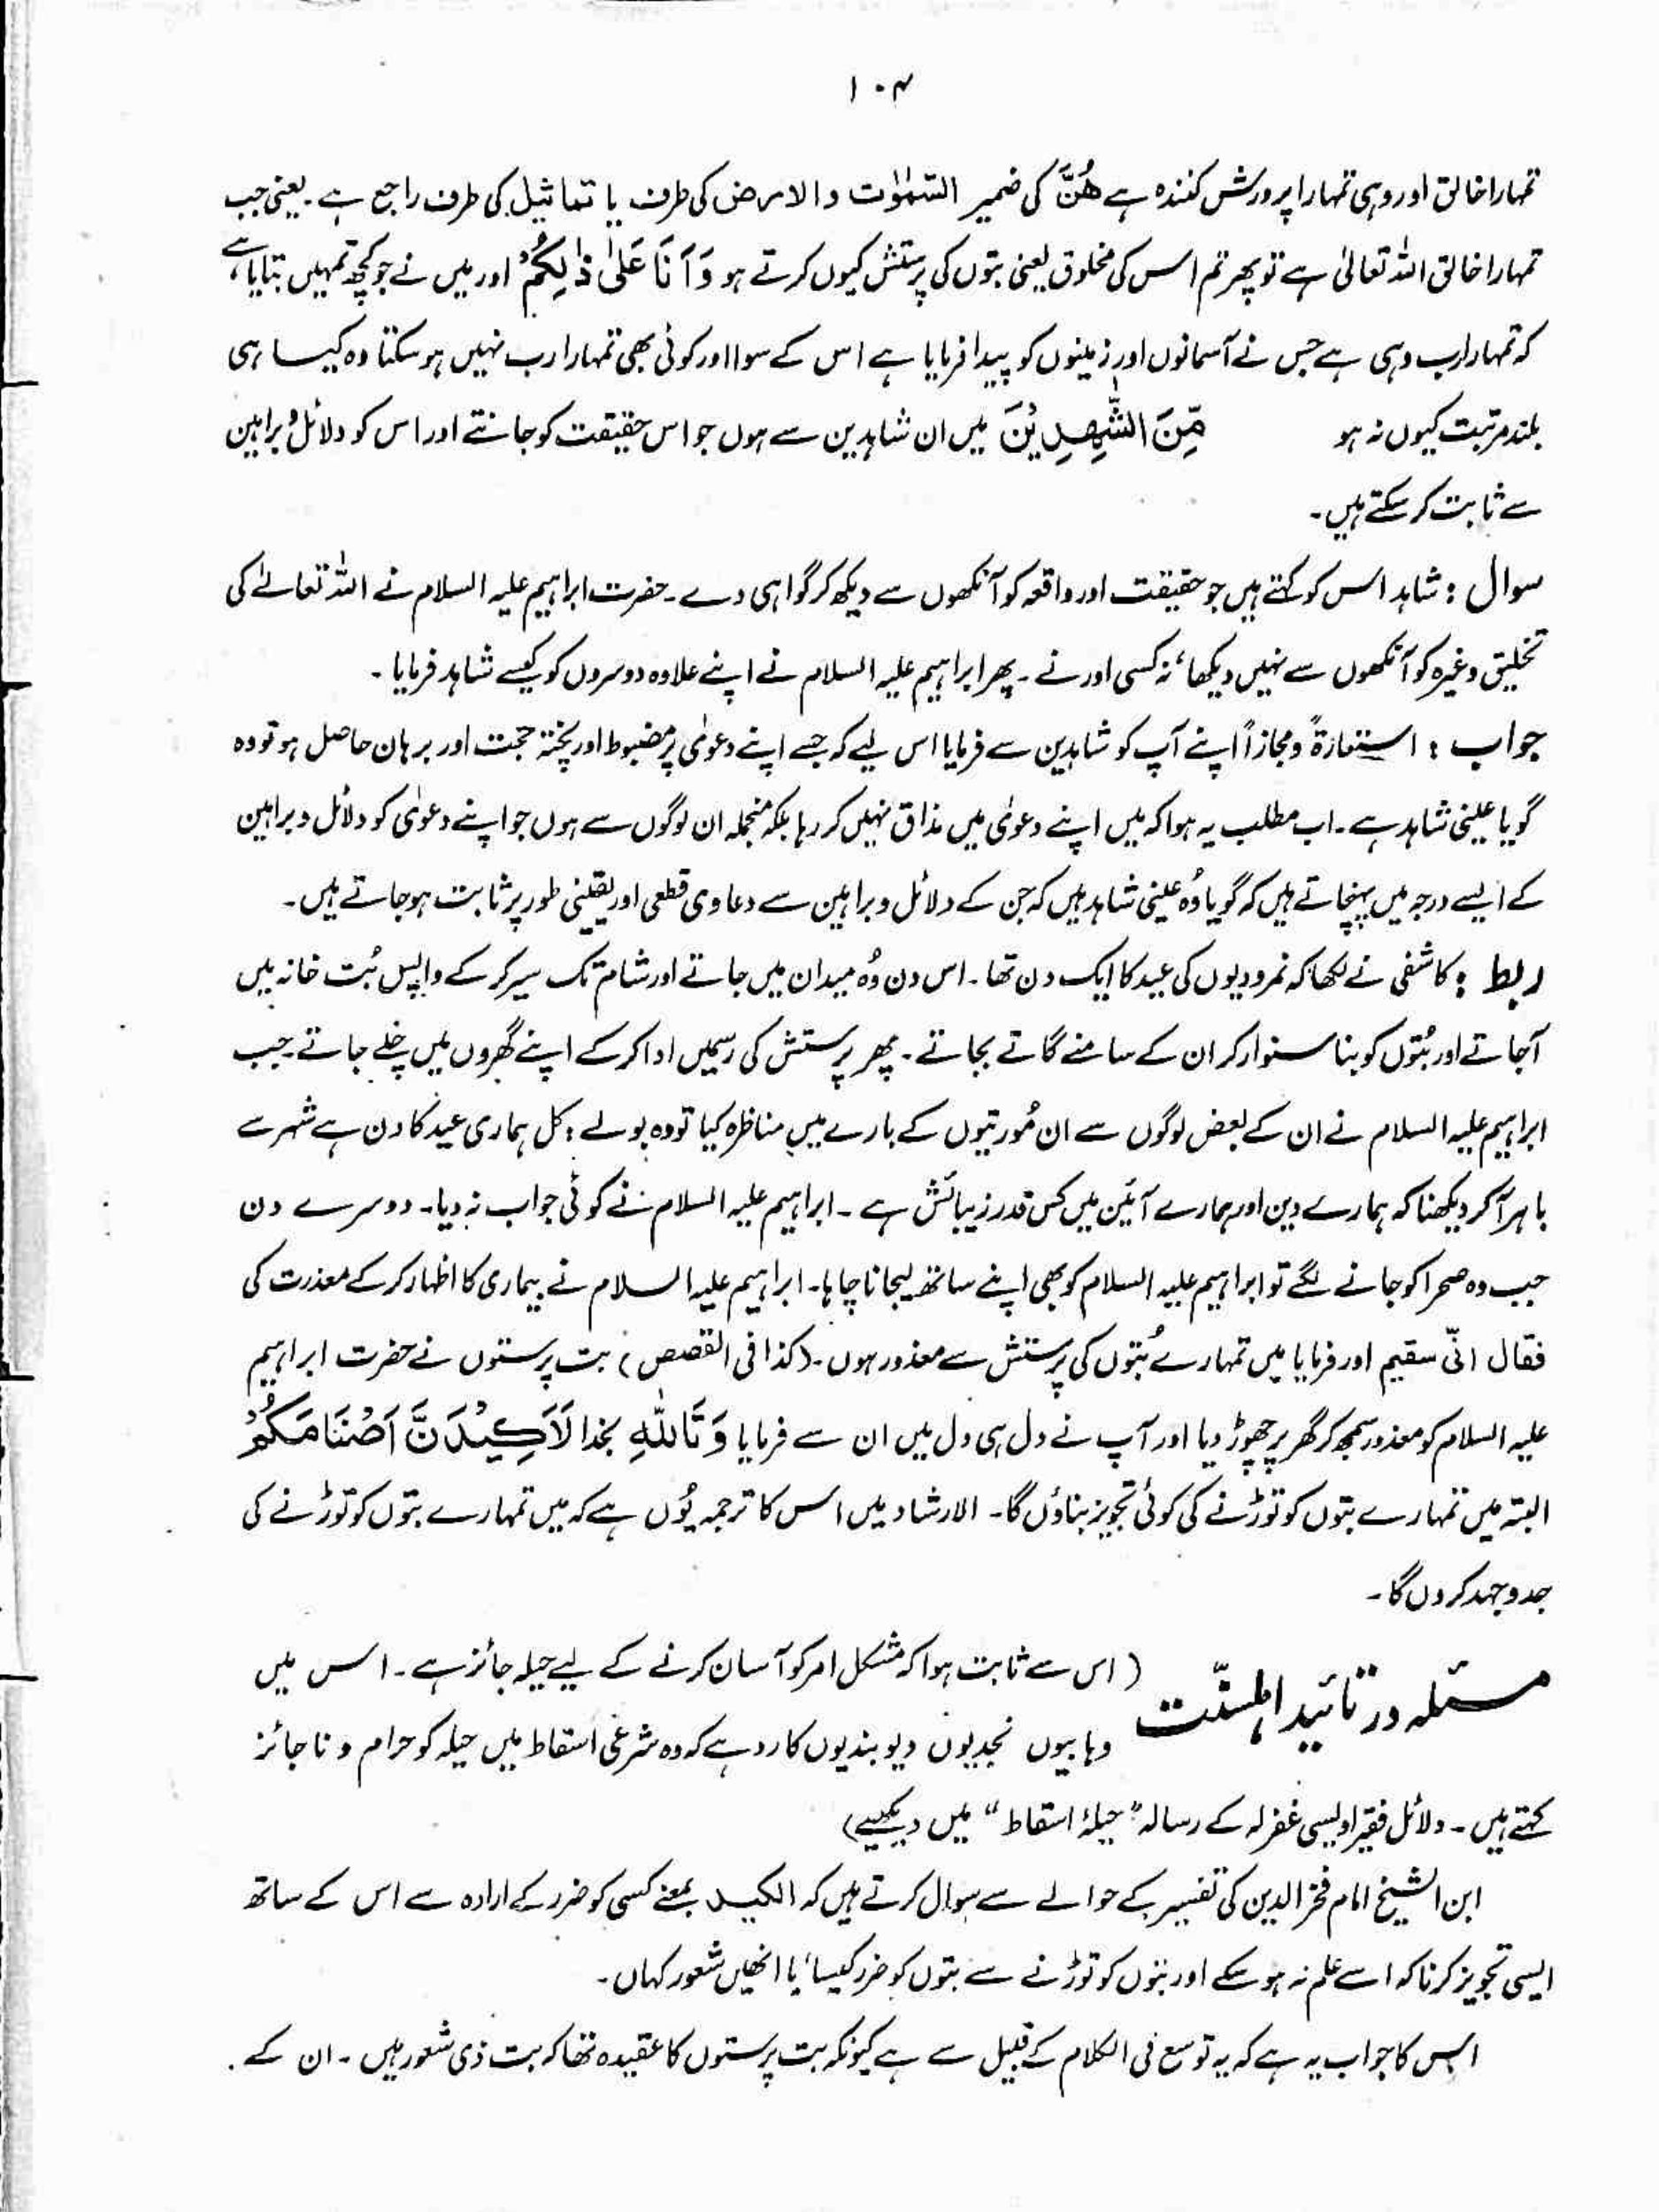 ۱۰۴
تمہارا خالق اور وہی تمہارا پرورش کنندہ ہے ھُنَّ کی ضمیر السّمٰوٰت والارض کی طرف یا تماثیل کی طرف راجع ہے ۔ یعنی جب
تمہارا خالق اللہ تعالیٰ ہے تو پھر تم اس کی مخلوق یعنی بتوں کی پرستش کیوں کرتے ہو وَاَنَا عَلٰی ذٰلِکُمْ اور میں نے جو کچھ تمہیں بتایا ہے،
کہ تمہارا رب وہی ہے جس نے آسمانوں اور زمینوں کو پیدا فرمایا ہے اس کے سوا اور کوئی بھی تمہارا رب نہیں ہو سکتا وہ کیسا ہی
بلند مرتبت کیوں نہ ہو مِّنَ الشّٰھِدِیْنَ میں ان شاہدین سے ہوں جو اس حقیقت کو جانتے اور اس کو دلائل و براہین
سے ثابت کر سکتے ہیں۔
سوال : شاہد اس کو کہتے ہیں جو حقیقت اور واقعہ کو آنکھوں سے دیکھ کر گواہی دے ۔ حضرت ابراہیم علیہ السلام نے اللہ تعالےٰ کی
تخلیق وغیرہ کو آنکھوں سے نہیں دیکھا، نہ کسی اور نے ۔ پھر ابراہیم علیہ السلام نے اپنے علاوہ دوسروں کو کیسے شاہد فرمایا ۔
جواب : استعارۃً و مجازاً اپنے آپ کو شاہدین سے فرمایا اس لیے کہ جسے اپنے دعوٰی پر مضبوط اور پختہ حجت اور برہان حاصل ہو تو وہ
گویا عینی شاہد ہے ۔ اب مطلب یہ ہوا کہ میں اپنے دعوٰی میں مذاق نہیں کر رہا بلکہ منجملہ ان لوگوں سے ہوں جو اپنے دعوٰی کو دلائل و براہین
کے ایسے درجہ میں پہنچاتے ہیں کہ گویا وُہ عینی شاہد ہیں کہ جن کے دلائل و براہین سے دعاوی قطعی اور یقینی طور پر ثابت ہو جاتے ہیں۔
ربط : کاشفی نے لکھا کہ نمرودیوں کی عید کا ایک دن تھا ۔ اس دن وُہ میدان میں جاتے اور شام تک سیر کر کے واپس بُت خانہ میں
آجاتے اور بُتوں کو بنا سنوار کر ان کے سامنے گاتے بجاتے ۔ پھر پرستش کی رسمیں ادا کر کے اپنے گھروں میں چلے جاتے۔ جب
ابراہیم علیہ السلام نے ان کے بعض لوگوں سے ان مُورتیوں کے بارے میں مناظرہ کیا تو وہ بولے : کل ہماری عید کا دن ہے شہر سے
باہر آ کر دیکھنا کہ ہمارے دین اور ہمارے آئین میں کس قدر زیبائش ہے ۔ ابراہیم علیہ السلام نے کوئی جواب نہ دیا۔ دوسرے دن
جب وہ صحرا کو جانے لگے تو ابراہیم علیہ السلام کو بھی اپنے ساتھ لیجانا چاہا۔ ابراہیم علیہ السلام نے بیماری کا اظہار کر کے معذرت کی
فقال انّی سقیم اور فرمایا میں تمہارے بُتوں کی پرستش سے معذور ہوں ۔ (کذا فی القصص) بت پرستوں نے حضرت ابراہیم
علیہ السلام کو معذور سمجھ کر گھر پر چھوڑ دیا اور آپ نے دل ہی دل میں ان سے فرمایا وَتَاللّٰہِ بخدا لَاَکِیْدَنَّ اَصْنَامَکُمْ
البتہ میں تمہارے بتوں کو توڑنے کی کوئی تجویز بناؤں گا۔ الارشاد میں اس کا ترجمہ یُوں ہے کہ میں تمہارے بتوں کو توڑنے کی
جدوجہد کروں گا ۔
مسئلہ در تائید اہلسنّت (اس سے ثابت ہوا کہ مشکل امر کو آسان کرنے کے لیے حیلہ جائز ہے ۔ اس میں
وہابیوں نجدیوں دیوبندیوں کا رد ہے کہ وہ شرعی اسقاط میں حیلہ کو حرام و ناجائز
کہتے ہیں ۔ دلائل فقیر اویسی غفرلہ کے رسالہ "حیلۂ اسقاط" میں دیکھیے)
ابن الشیخ امام فخر الدین کی تفسیر کے حوالے سے سوال کرتے ہیں کہ الکید بمعنے کسی کو ضرر کے ارادہ سے اس کے ساتھ
ایسی تجویز کرنا کہ اسے علم نہ ہو سکے اور بتوں کو توڑنے سے بتوں کو ضرر کیسا، یا انھیں شعور کہاں ۔
اس کا جواب یہ ہے کہ یہ توسع فی الکلام کے قبیل سے ہے کیونکہ بت پرستوں کا عقیدہ تھا کہ بت ذی شعور ہیں ۔ ان کے